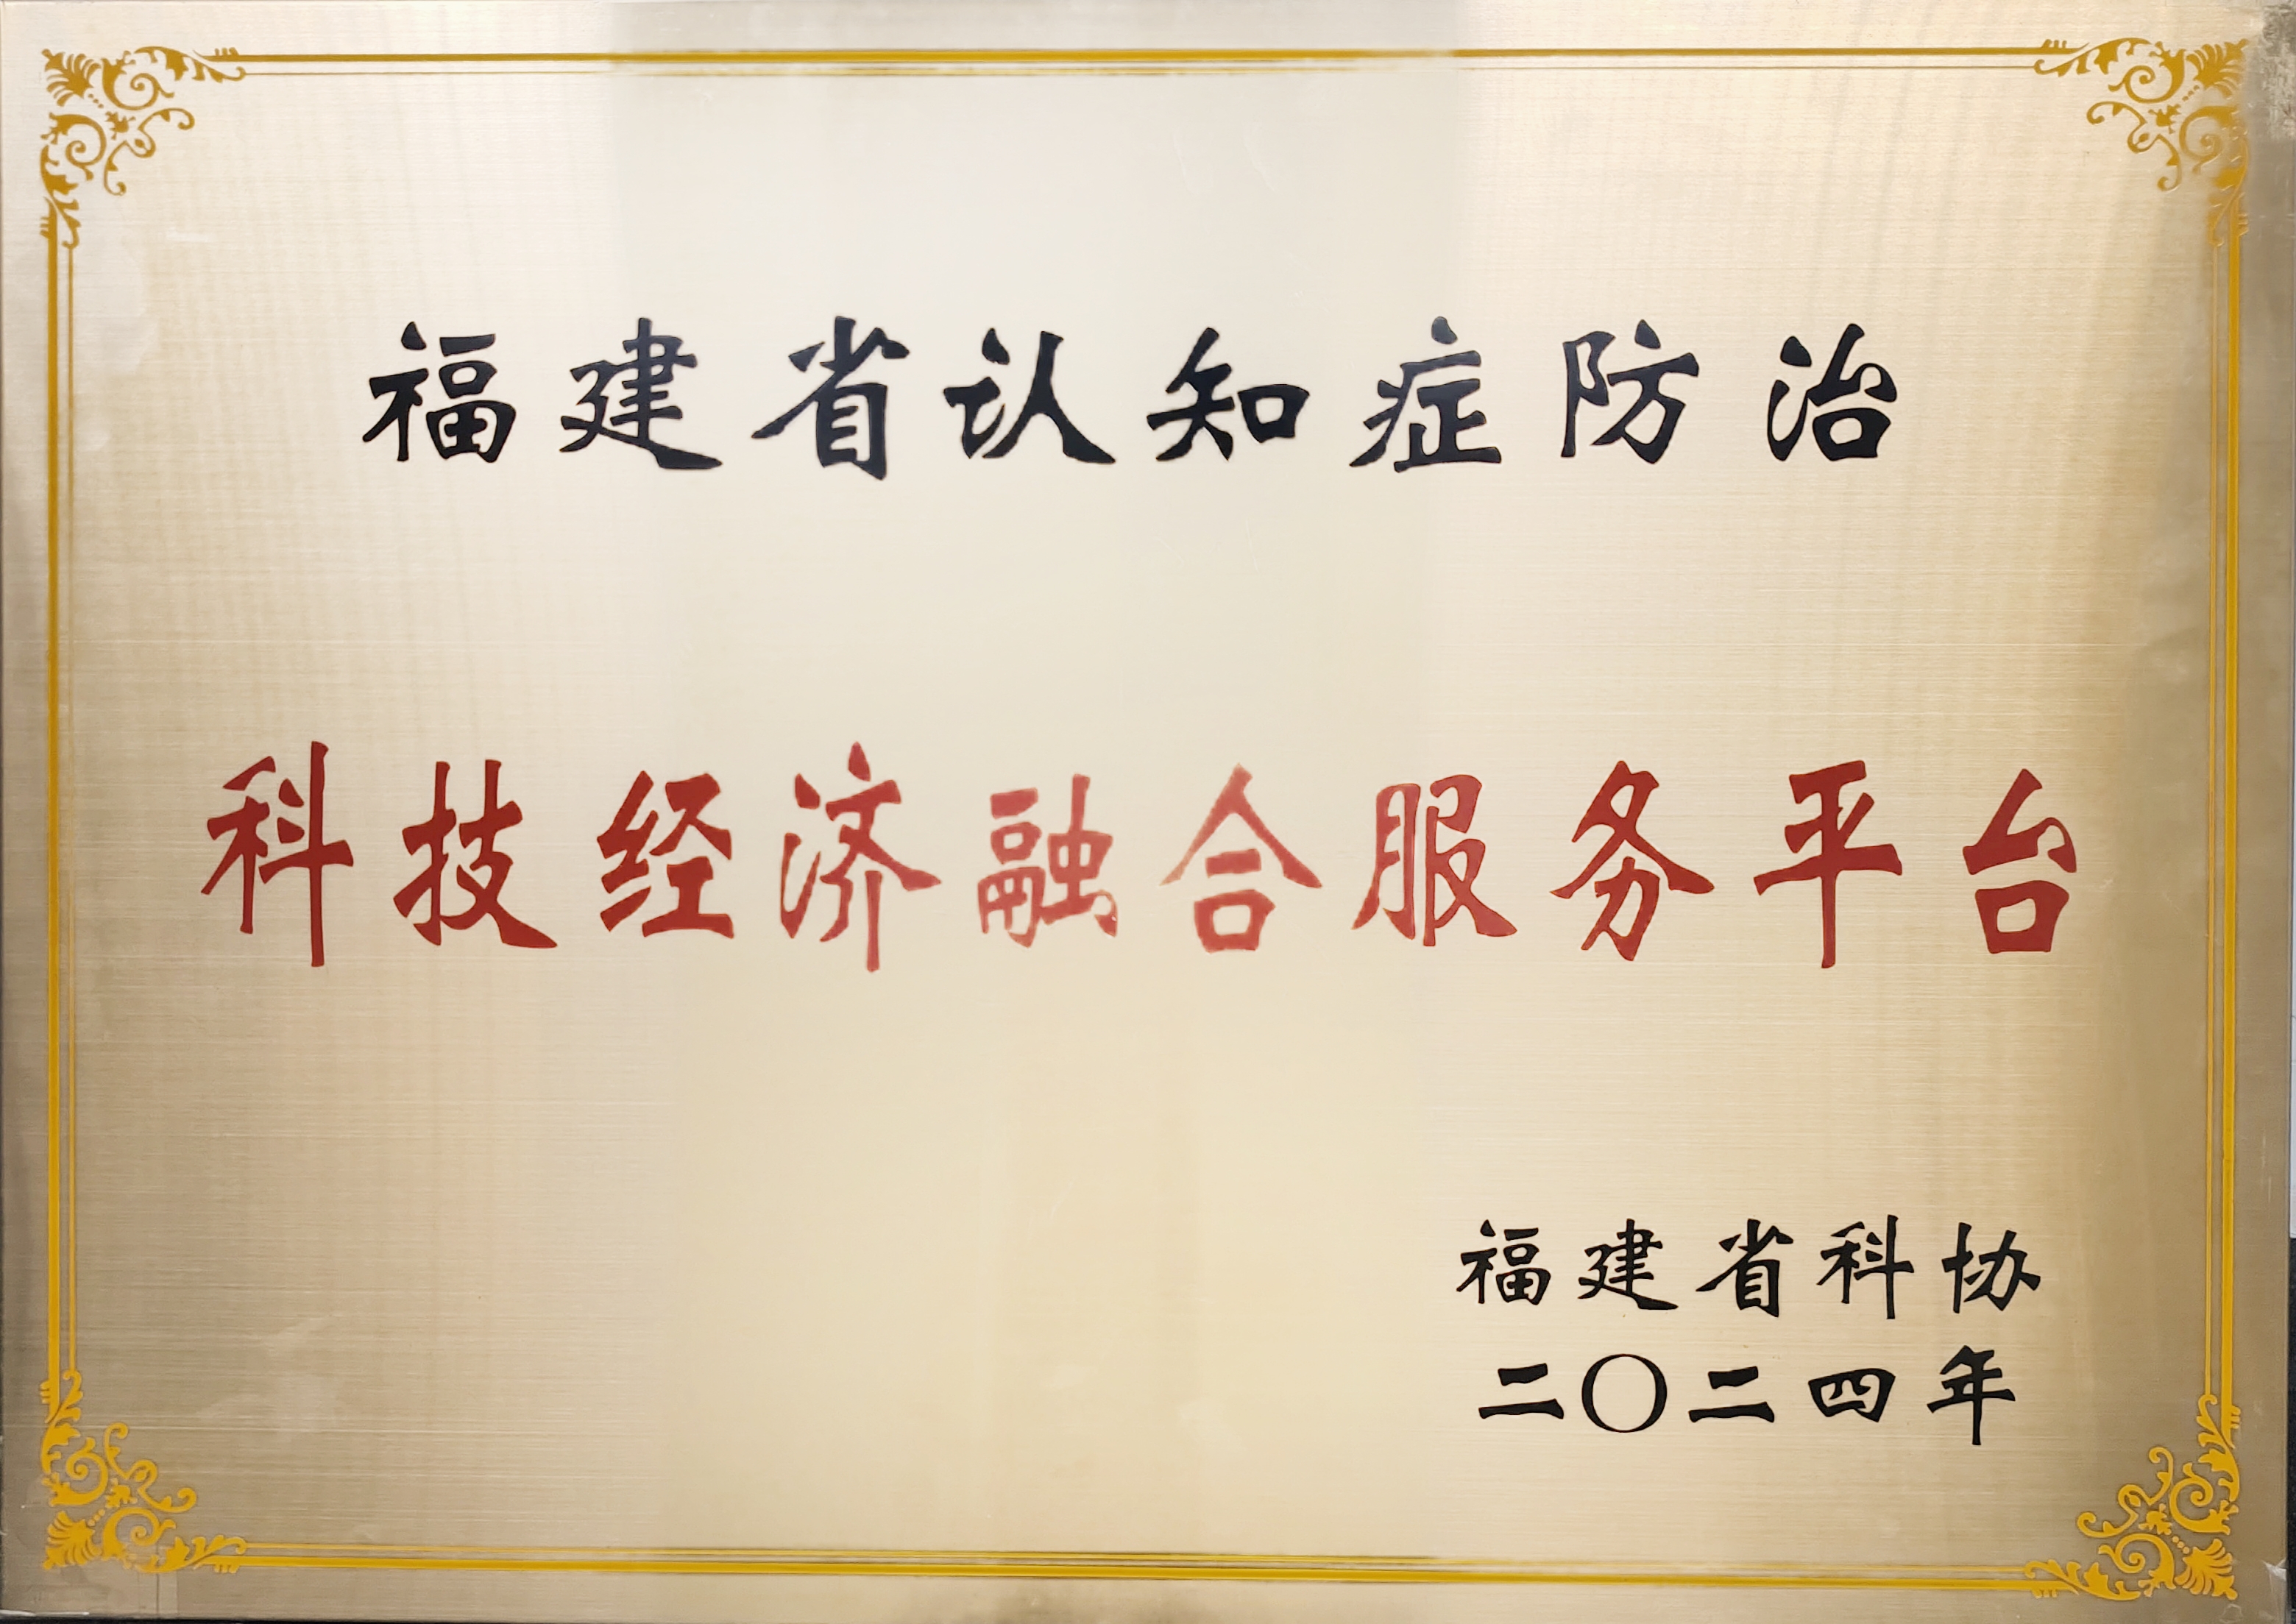 福建省认知症防治
科技经济融合服务平台
福建省科协
二〇二四年